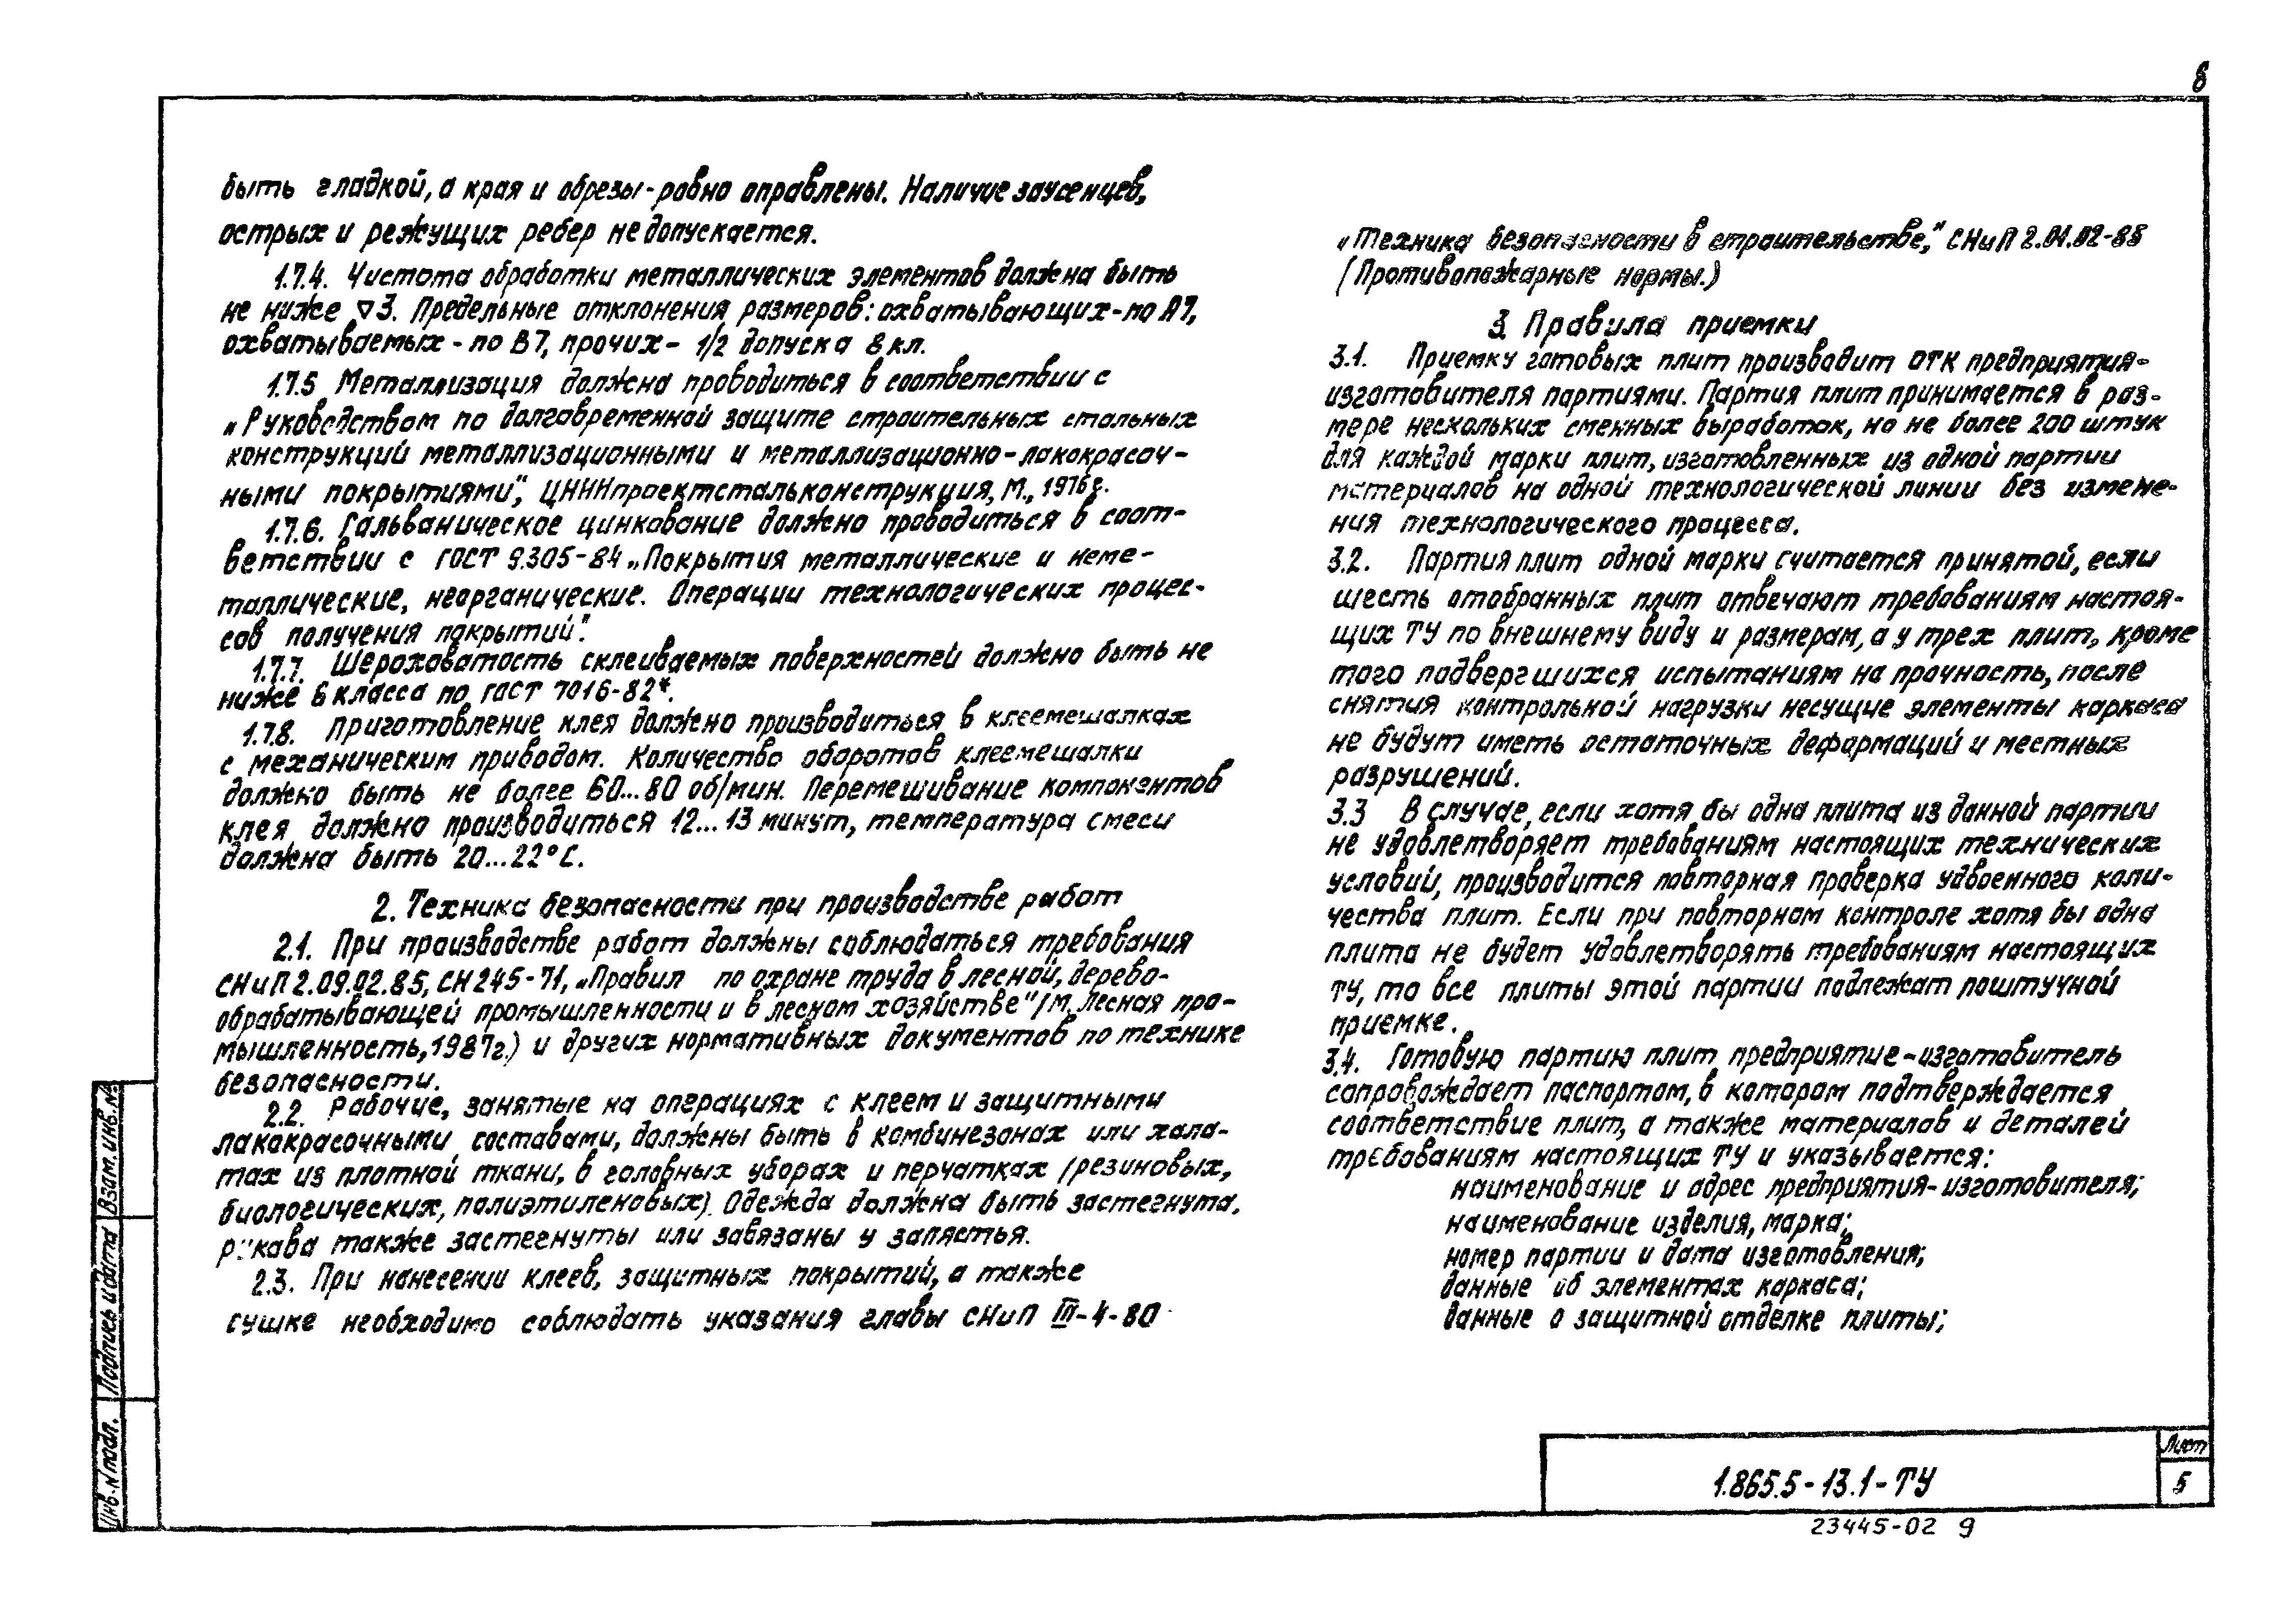 8
быть гладкой, а края и обрезы-ровно оправлены. Наличие заусенцев,
острых и режущих ребер не допускается.
1.7.4. Чистота обработки металлических элементов должна быть
не ниже ▽3. Предельные отклонения размеров: охватывающих-по А7,
охватываемых - по В7, прочих - 1/2 допуска 8 кл.
1.7.5 Металлизация должна проводиться в соответствии с
„Руководством по долговременной защите строительных стальных
конструкций металлизационными и металлизационно-лакокрасоч-
ными покрытиями", ЦНИИпроектстальконструкция, М., 1976г.
1.7.6. Гальваническое цинкование должно проводиться в соот-
ветствии с ГОСТ 9.305-84 „Покрытия металлические и неме-
таллические, неорганические. Операции технологических процес-
сов получения покрытий".
1.7.7. Шероховатость склеиваемых поверхностей должно быть не
ниже 6 класса по ГОСТ 7016-82*.
1.7.8. Приготовление клея должно производиться в клеемешалках
с механическим приводом. Количество оборотов клеемешалки
должно быть не более 60...80 об/мин. Перемешивание компонентов
клея должно производиться 12...13 минут, температура смеси
должна быть 20...22°С.
2. Техника безопасности при производстве работ
2.1. При производстве работ должны соблюдаться требования
СНиП 2.09.02.85, СН 245-71, „Правил по охране труда в лесной, дерево-
обрабатывающей промышленности и в лесном хозяйстве" /М. Лесная про-
мышленность, 1987г.) и других нормативных документов по технике
безопасности.
2.2. Рабочие, занятые на операциях с клеем и защитными
лакокрасочными составами, должны быть в комбинезонах или хала-
тах из плотной ткани, в головных уборах и перчатках /резиновых,
биологических, полиэтиленовых). Одежда должна быть застегнута,
рукава также застегнуты или завязаны у запястья.
2.3. При нанесении клеев, защитных покрытий, а также
сушке необходимо соблюдать указания главы СНиП III-4-80
„Техника безопасности в строительстве," СНиП 2.01.02-85
(Противопожарные нормы.)
3. Правила приемки
3.1. Приемку готовых плит производит ОТК предприятия-
изготовителя партиями. Партия плит принимается в раз-
мере нескольких сменных выработок, но не более 200 штук
для каждой марки плит, изготовленных из одной партии
материалов на одной технологической линии без измене-
ния технологического процесса.
3.2. Партия плит одной марки считается принятой, если
шесть отобранных плит отвечают требованиям настоя-
щих ТУ по внешнему виду и размерам, а у трех плит, кроме
того подвергшихся испытаниям на прочность, после
снятия контрольной нагрузки несущие элементы каркаса
не будут иметь остаточных деформаций и местных
разрушений.
3.3 В случае, если хотя бы одна плита из данной партии
не удовлетворяет требованиям настоящих технических
условий, производится повторная проверка удвоенного коли-
чества плит. Если при повторном контроле хотя бы одна
плита не будет удовлетворять требованиям настоящих
ТУ, то все плиты этой партии подлежат поштучной
приемке.
3.4. Готовую партию плит предприятие-изготовитель
сопровождает паспортом, в котором подтверждается
соответствие плит, а также материалов и деталей
требованиям настоящих ТУ и указывается:
наименование и адрес предприятия-изготовителя;
наименование изделия, марка;
номер партии и дата изготовления;
данные об элементах каркаса;
данные о защитной отделке плиты;
Взам. инв. №
Подпись и дата
Инв. N подл.
1.865.5-13.1-ТУ
Лист
5
23445-02 9